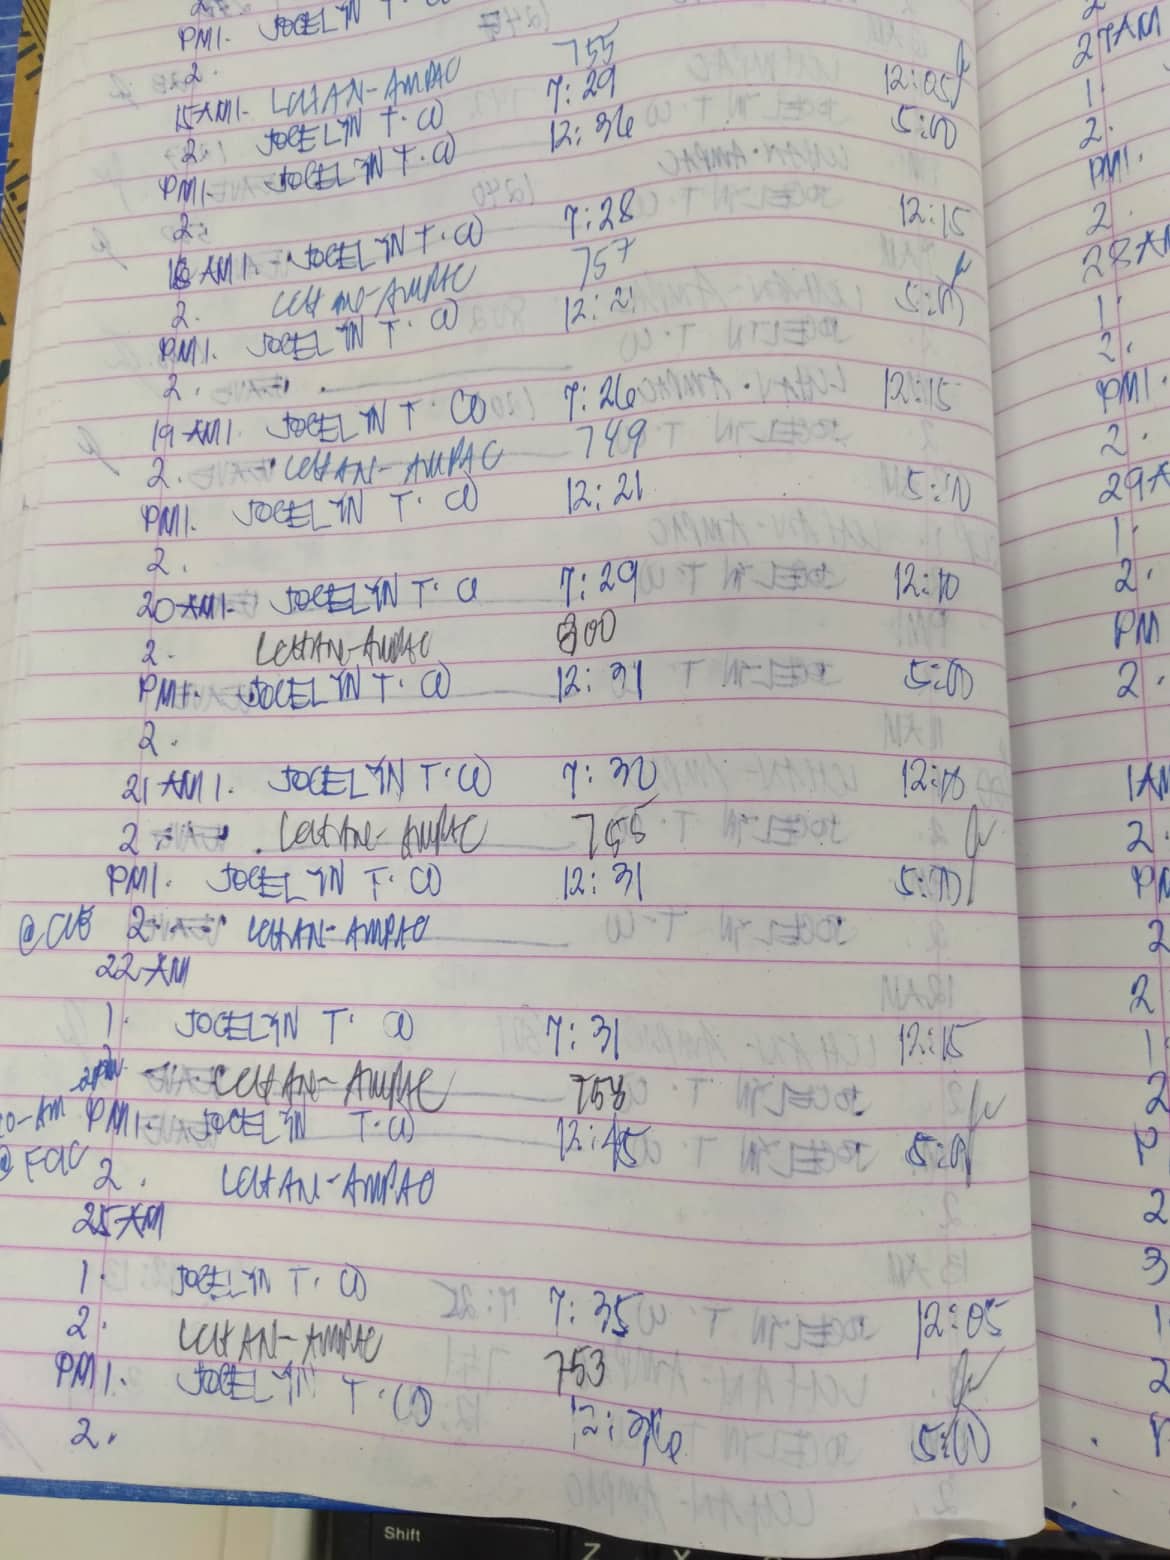 PM1. JOCELYN T. CO
2.
15AM1. LCHAN-AMPAC 755
2. JOCELYN T. CO 7:29 12:05
PM1. JOCELYN T. CO 12:36 5:00
2.
18 AM1. JOCELYN T. CO 7:28 12:15
2. LCHAN-AMPAC 757
PM1. JOCELYN T. CO 12:21 5:00
2.
19 AM1. JOCELYN T. CO 7:26 12:15
2. LCHAN-AMPAC 749
PM1. JOCELYN T. CO 12:21 5:00
2.
20 AM1. JOCELYN T. CO 7:29 12:10
2. LCHAN-AMPAC 800
PM1. JOCELYN T. CO 12:31 5:00
2.
21 AM1. JOCELYN T. CO 7:30 12:10
2. LCHAN-AMPAC 755
PM1. JOCELYN T. CO 12:31 5:00
2. LCHAN-AMPAC
22 AM
1. JOCELYN T. CO 7:31 12:15
LCHAN-AMPAC 758
PM1. JOCELYN T. CO 12:45 5:01
2. LCHAN-AMPAC
25 AM
1. JOCELYN T. CO 7:35 12:05
2. LCHAN-AMPAC 753
PM1. JOCELYN T. CO 5:00
2.
27AM
1.
2.
PM1.
2.
28AM
1.
2.
PM1.
2.
29A
1.
2.
PM
2.
1AM
2.
PM
2
2
1
2
P
2
3
1
2
Shift
Z
X